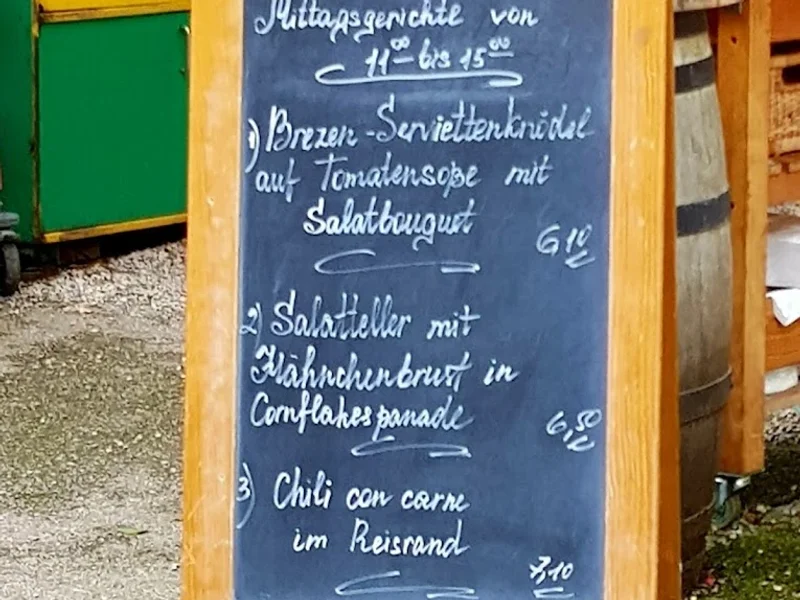 Mittagsgerichte von
11⁰⁰ bis 15⁰⁰
1) Brezen-Serviettenknödel
auf Tomatensoße mit
Salatbouguet
6,10
2) Salatteller mit
Hähnchenbrust in
Cornflakespanade
6,50
3) Chili con carne
im Reisrand
7,10